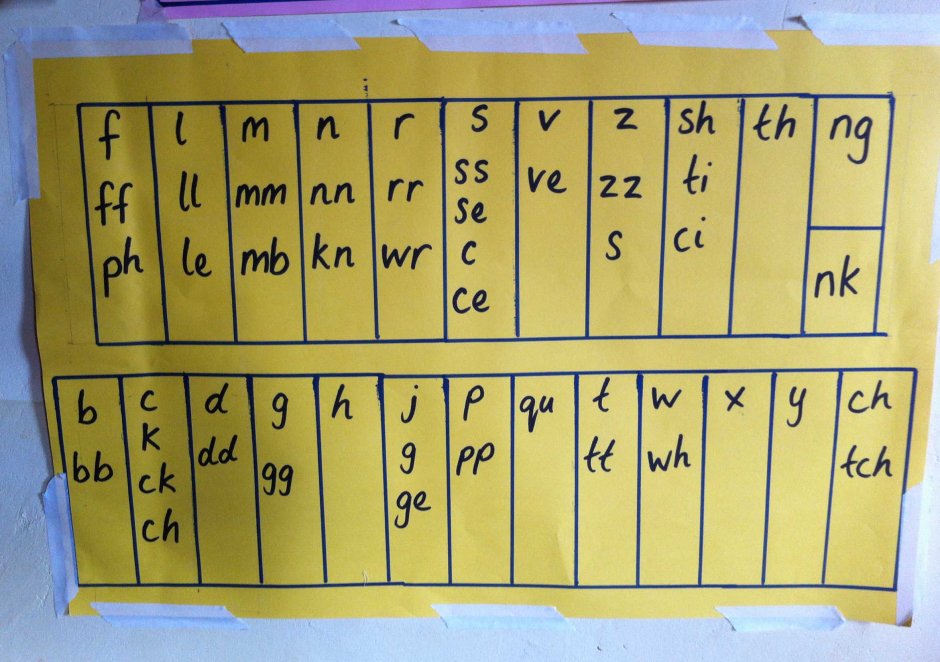 f l m n r s v z sh th ng
ff ll mm nn rr ss ve zz ti
se
ph le mb kn wr c s ci nk
ce
b c d g h j p qu t w x y ch
k
bb ck dd gg g pp tt wh tch
ch ge